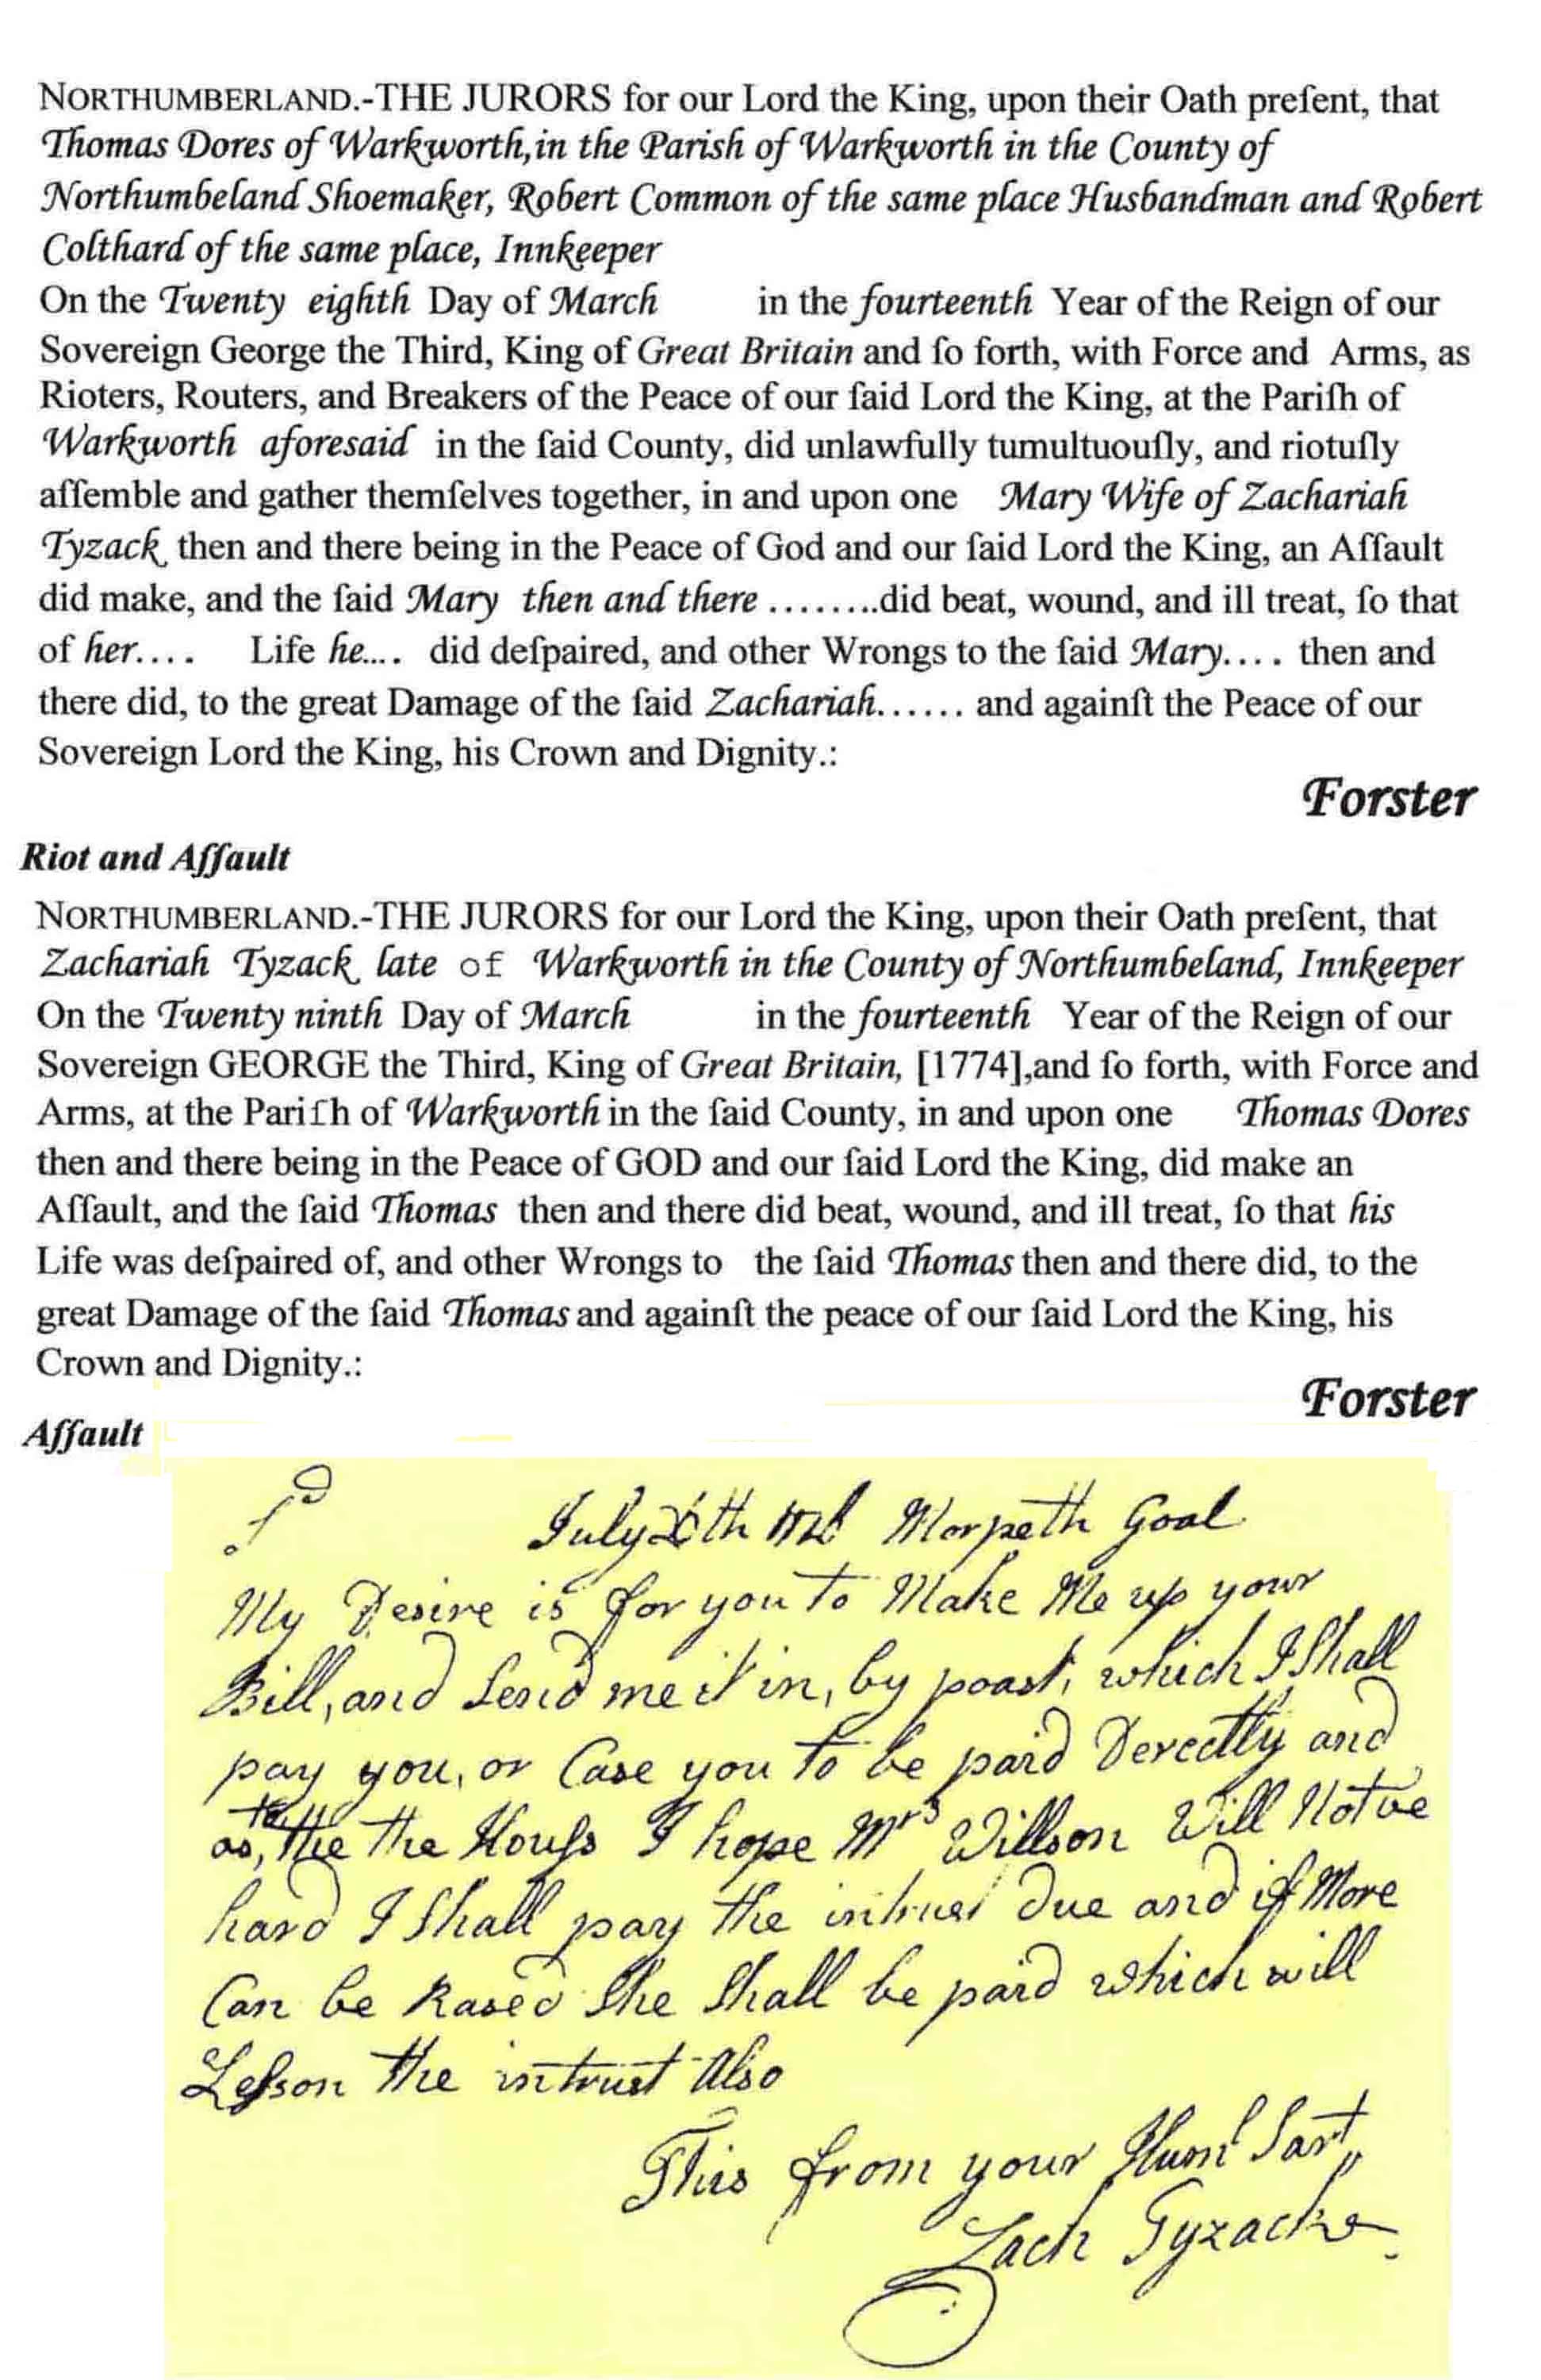 NORTHUMBERLAND.-THE JURORS for our Lord the King, upon their Oath preſent, that
Thomas Dores of Warkworth, in the Parish of Warkworth in the County of
Northumbeland Shoemaker, Robert Common of the same place Husbandman and Robert
Colthard of the same place, Innkeeper
On the Twenty eighth Day of March in the fourteenth Year of the Reign of our
Sovereign George the Third, King of Great Britain and ſo forth, with Force and Arms, as
Rioters, Routers, and Breakers of the Peace of our ſaid Lord the King, at the Pariſh of
Warkworth aforesaid in the ſaid County, did unlawfully tumultuouſly, and riotuſly
aſſemble and gather themſelves together, in and upon one Mary Wife of Zachariah
Tyzack then and there being in the Peace of God and our ſaid Lord the King, an Aſſault
did make, and the ſaid Mary then and there ........did beat, wound, and ill treat, ſo that
of her.... Life he.... did deſpaired, and other Wrongs to the ſaid Mary.... then and
there did, to the great Damage of the ſaid Zachariah...... and againſt the Peace of our
Sovereign Lord the King, his Crown and Dignity.:
Forster
Riot and Aſſault
NORTHUMBERLAND.-THE JURORS for our Lord the King, upon their Oath preſent, that
Zachariah Tyzack late of Warkworth in the County of Northumbeland, Innkeeper
On the Twenty ninth Day of March in the fourteenth Year of the Reign of our
Sovereign GEORGE the Third, King of Great Britain, [1774],and ſo forth, with Force and
Arms, at the Pariſh of Warkworth in the ſaid County, in and upon one Thomas Dores
then and there being in the Peace of GOD and our ſaid Lord the King, did make an
Aſſault, and the ſaid Thomas then and there did beat, wound, and ill treat, ſo that his
Life was deſpaired of, and other Wrongs to the ſaid Thomas then and there did, to the
great Damage of the ſaid Thomas and againſt the peace of our ſaid Lord the King, his
Crown and Dignity.:
Forster
Aſſault
July Morpeth Goal
My Desire is for you to Make Me up your
Bill, and Send me it in, by poast, which I Shall
pay you, or Case you to be paid Derecttly and
as, to the the Houſs I hope Mrs Willson Will Not be
hard I Shall pay the intrust Due and if More
Can be Rased She Shall be paid which will
Leſson the intrust Also
This from your Hum Sart
Zach Tyzacke